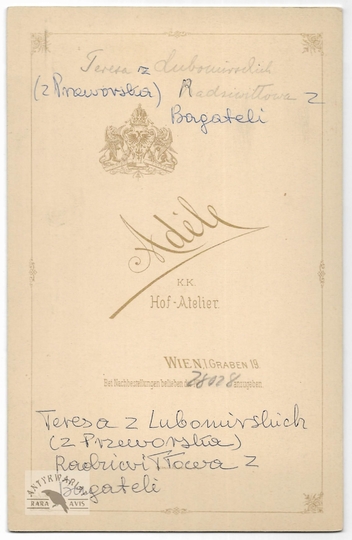 Teresa z Lubomirskich
(z Przeworska) Radziwiłłowa z
Bagateli
Adèle
K.K.
Hof-Atelier.
WIEN, I GRABEN 19.
Bei Nachbestellungen belieben 28028 anzugeben.
Teresa z Lubomirskich
(z Przeworska)
Radziwiłłowa z
Bagateli
ANTYKWARIAT
RARA AVIS